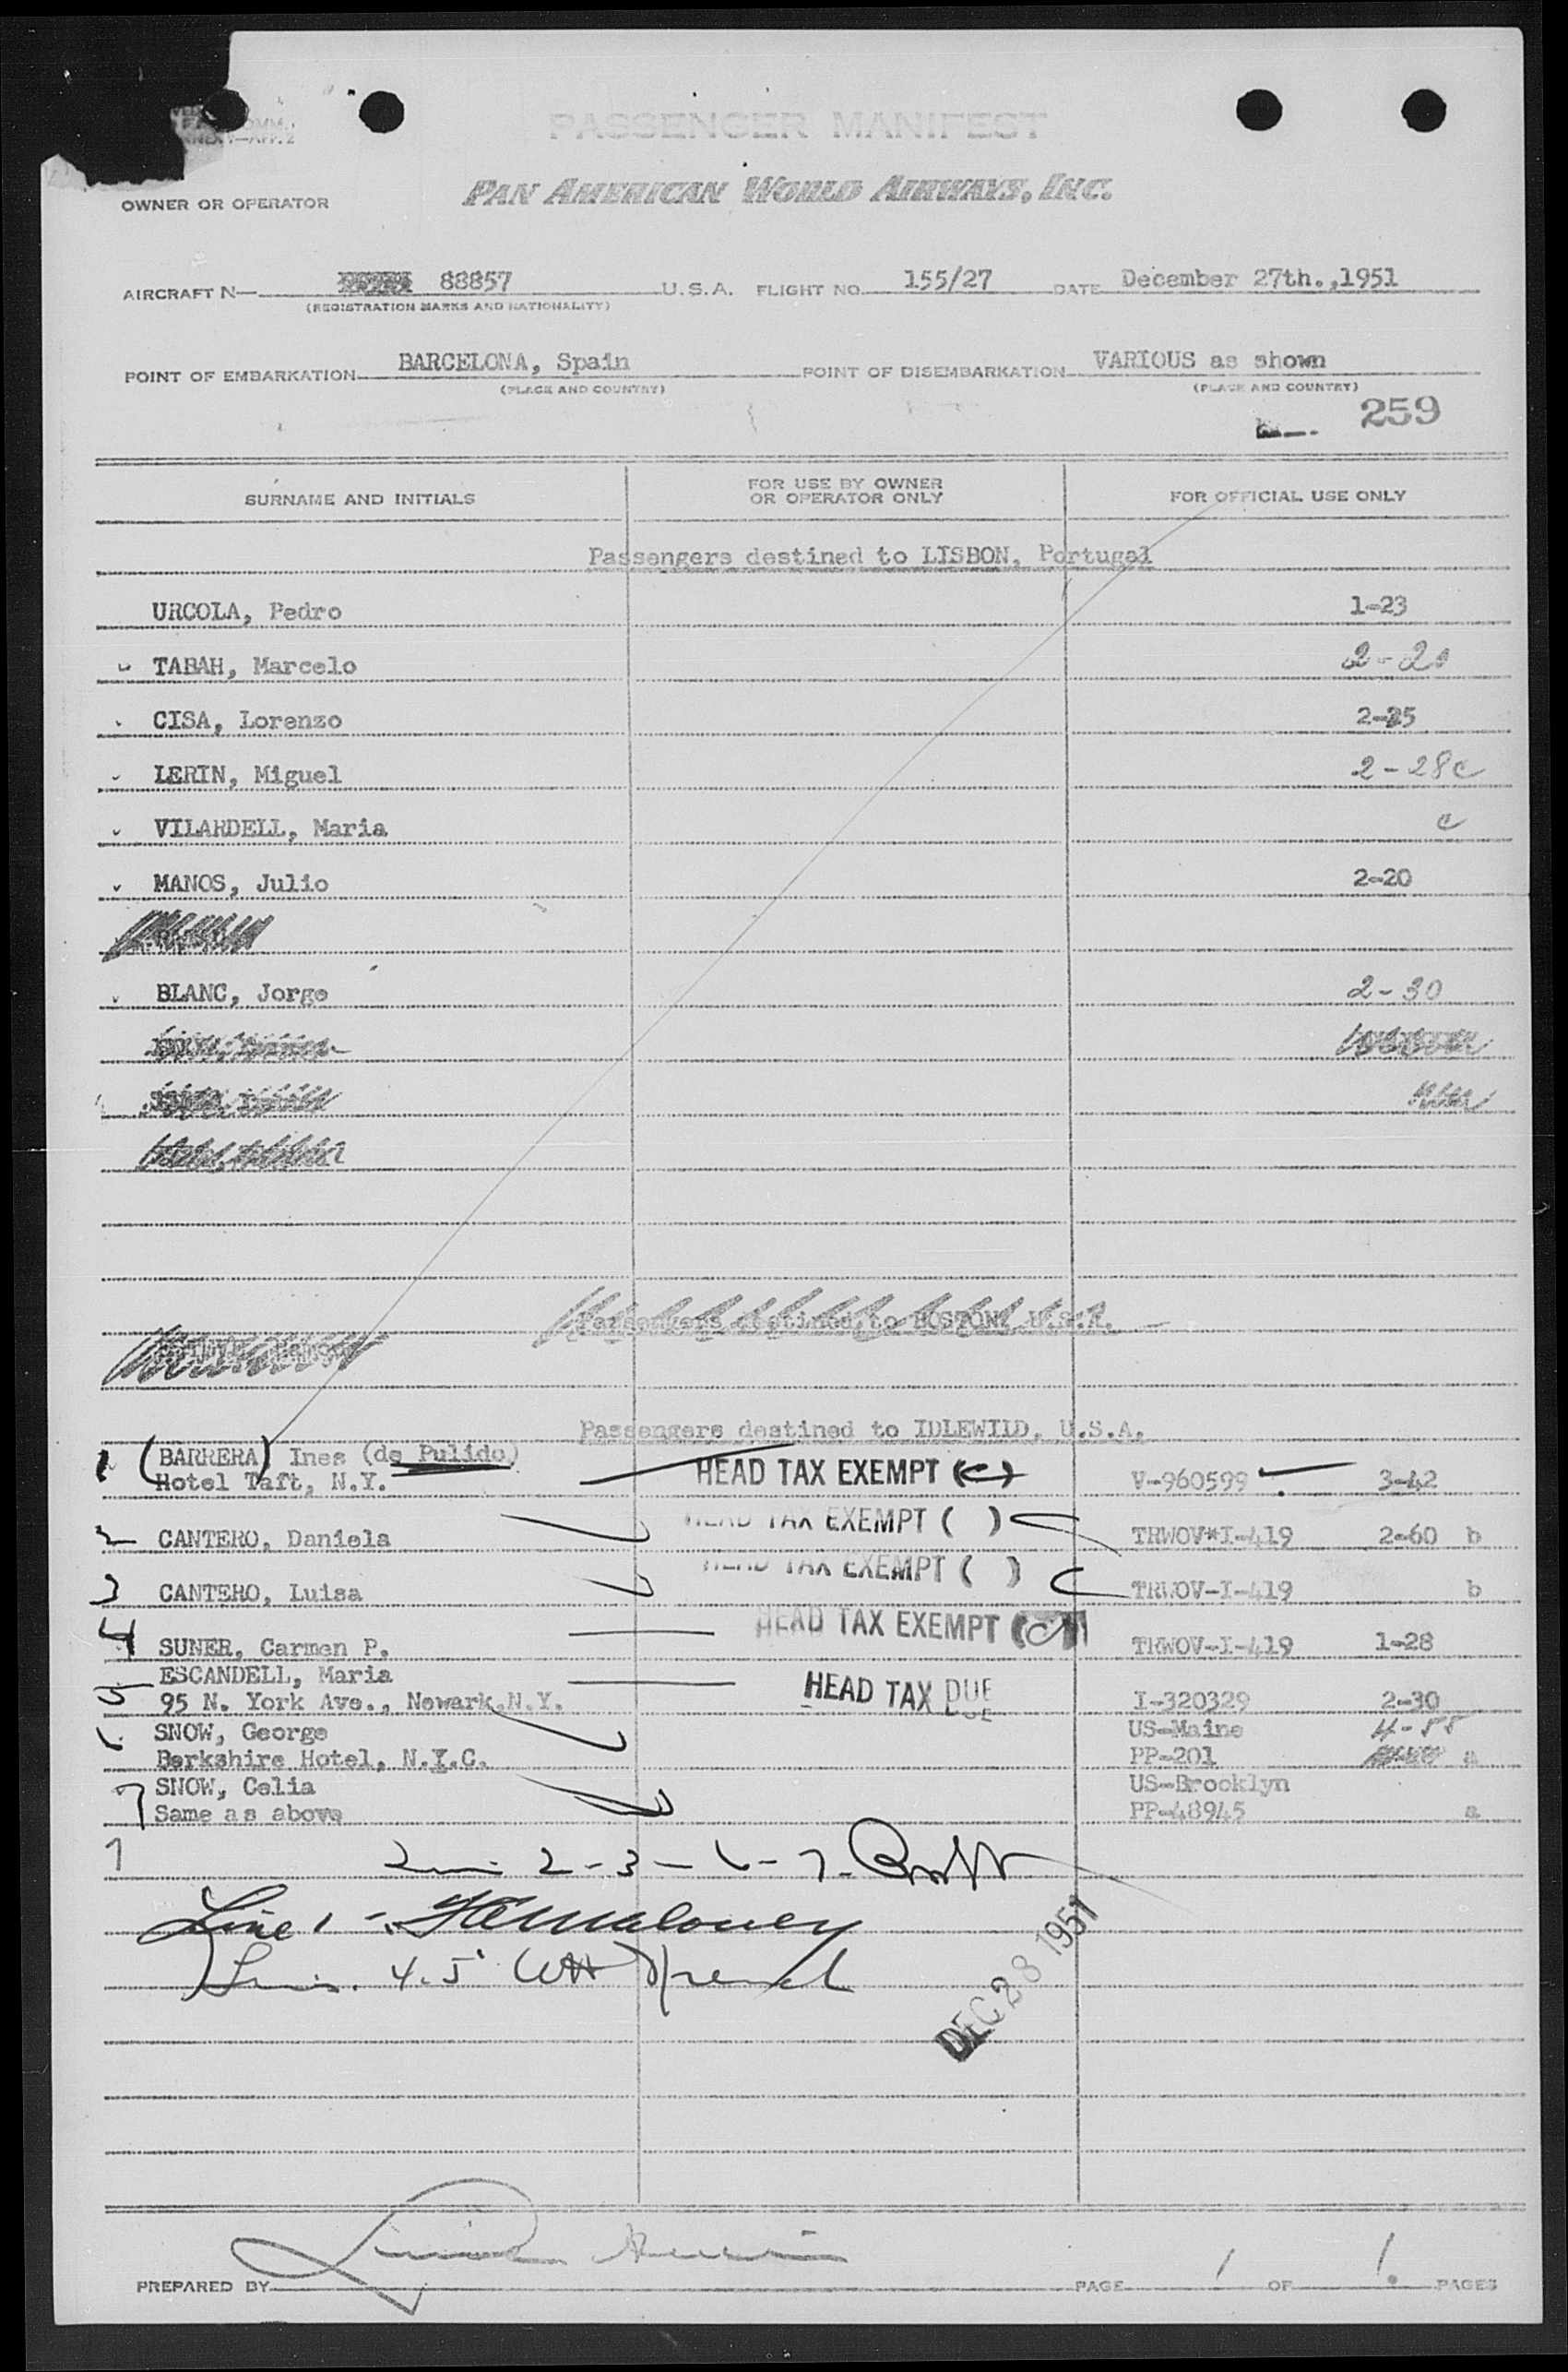 PASSENGER MANIFEST
PAN AMERICAN WORLD AIRWAYS, INC.
OWNER OR OPERATOR
AIRCRAFT N— 88857 U.S.A. FLIGHT NO. 155/27 DATE December 27th.,1951
(REGISTRATION MARKS AND NATIONALITY)
POINT OF EMBARKATION BARCELONA, Spain POINT OF DISEMBARKATION VARIOUS as shown
(PLACE AND COUNTRY) (PLACE AND COUNTRY)
259
SURNAME AND INITIALS FOR USE BY OWNER OR OPERATOR ONLY FOR OFFICIAL USE ONLY
Passengers destined to LISBON, Portugal
URCOLA, Pedro 1-23
TABAH, Marcelo
CISA, Lorenzo 2-25
LERIN, Miguel 2-28c
VILARDELL, Maria c
MANOS, Julio 2-20
BLANC, Jorge 2-30
Passengers destined to BOSTON, U.S.A.
Passengers destined to IDLEWILD, U.S.A.
1 (BARRERA) Ines (de Pulido)
Hotel Taft, N.Y. HEAD TAX EXEMPT (c) V-960599 3-42
2 CANTERO, Daniela HEAD TAX EXEMPT ( ) TRWOV*I-419 2-60 b
3 CANTERO, Luisa HEAD TAX EXEMPT ( ) TRWOV-I-419 b
4 SUNER, Carmen P. HEAD TAX EXEMPT TRWOV-I-419 1-28
ESCANDELL, Maria
5 95 N. York Ave., Newark,N.Y. HEAD TAX DUE I-320329 2-30
SNOW, George US-Maine 4-55
Berkshire Hotel, N.Y.C. PP-201 a
7 SNOW, Celia US-Brooklyn
Same as above PP-48945 a
7
2-3-6-7-
Line 1 - Maloney
4.5
DEC 28 1951
PREPARED BY PAGE 1 OF 1. PAGES